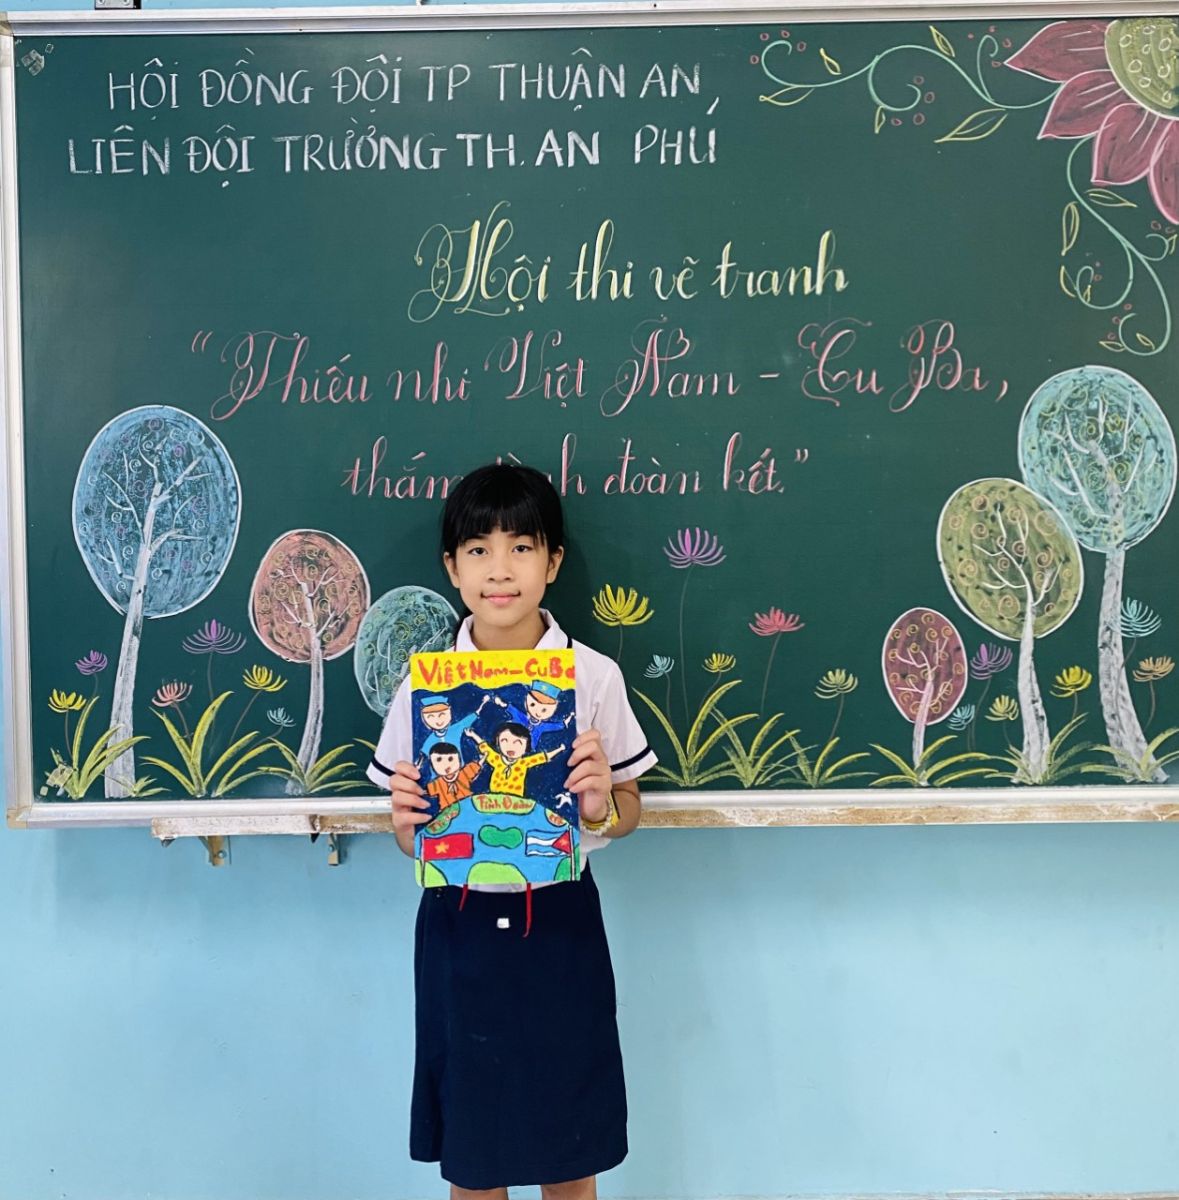 HỘI ĐỒNG ĐỘI TP THUẬN AN
LIÊN ĐỘI TRƯỜNG TH. AN PHÚ
Hội thi vẽ tranh
"Thiếu nhi Việt Nam - Cu Ba,
thắm đoàn kết."
Việt Nam - Cu Ba
Tình Đoàn